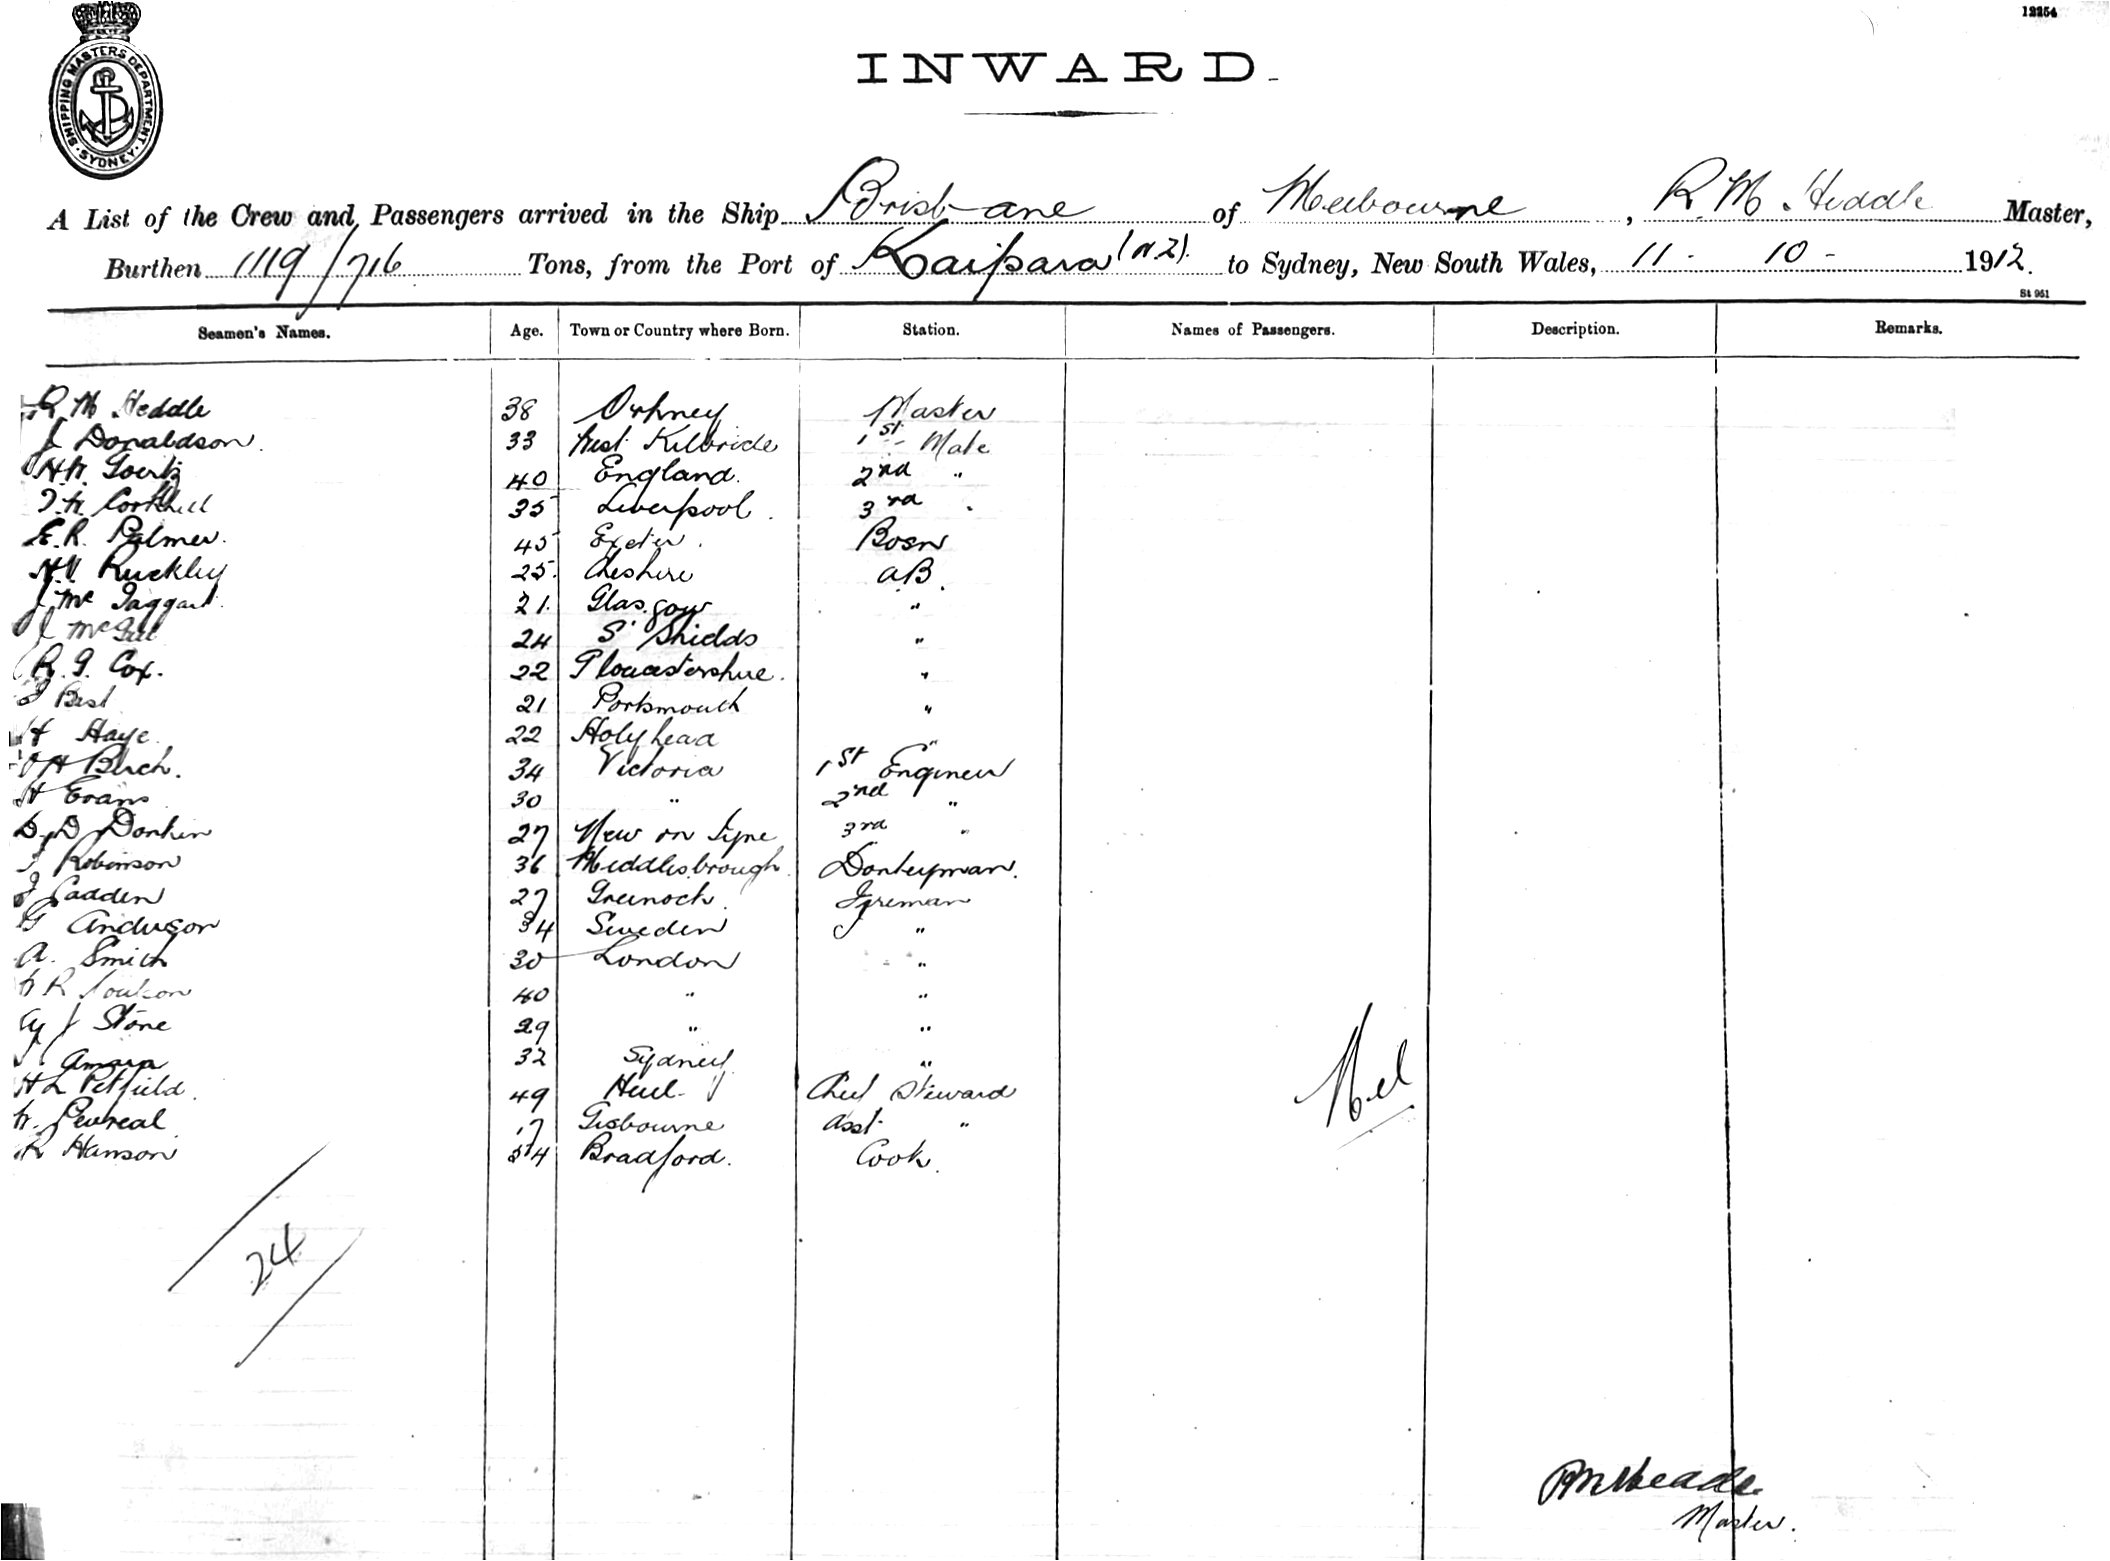 12254
SHIPPING MASTERS DEPARTMENT · SYDNEY ·
INWARD.
A List of the Crew and Passengers arrived in the Ship Brisbane of Melbourne, R. M. Heddle Master,
Burthen 1119/716 Tons, from the Port of Kaipara (N.Z). to Sydney, New South Wales, 11 - 10 - 1912.
St 961
Seamen's Names. Age. Town or Country where Born. Station. Names of Passengers. Description. Remarks.
R M Heddle 38 Orkney Master
J Donaldson. 33 West Kilbride 1st Mate
Goertz 40 England. 2nd "
Corkhill 35 Liverpool. 3rd "
E. R. Palmer. 45 Exeter. Bosn
Ruckley 25. Cheshire AB.
J Mc Taggart. 21. Glasgow "
J McGill 24 S' Shields "
R. G. Cox. 22 Gloucestershire. "
Best 21 Portsmouth "
H Haye. 22 Holyhead "
H Birch. 34 Victoria 1st Engineer
H Evans 30 " 2nd "
D. D Donkin 27 New on Tyne 3rd "
Robinson 36 Middlesbrough. Donkeyman.
J Cadden 27 Greenock. Fireman
G Anderson 34 Sweden "
A. Smith 30 London "
R 40 " "
J Stone 29 " "
32 Sydney "
H L Petfield. 49 Hull Chief Steward
17 Gisbourne Asst "
R Hanson 54 Bradford. Cook.
Nil
24
R M Heddle
Master.